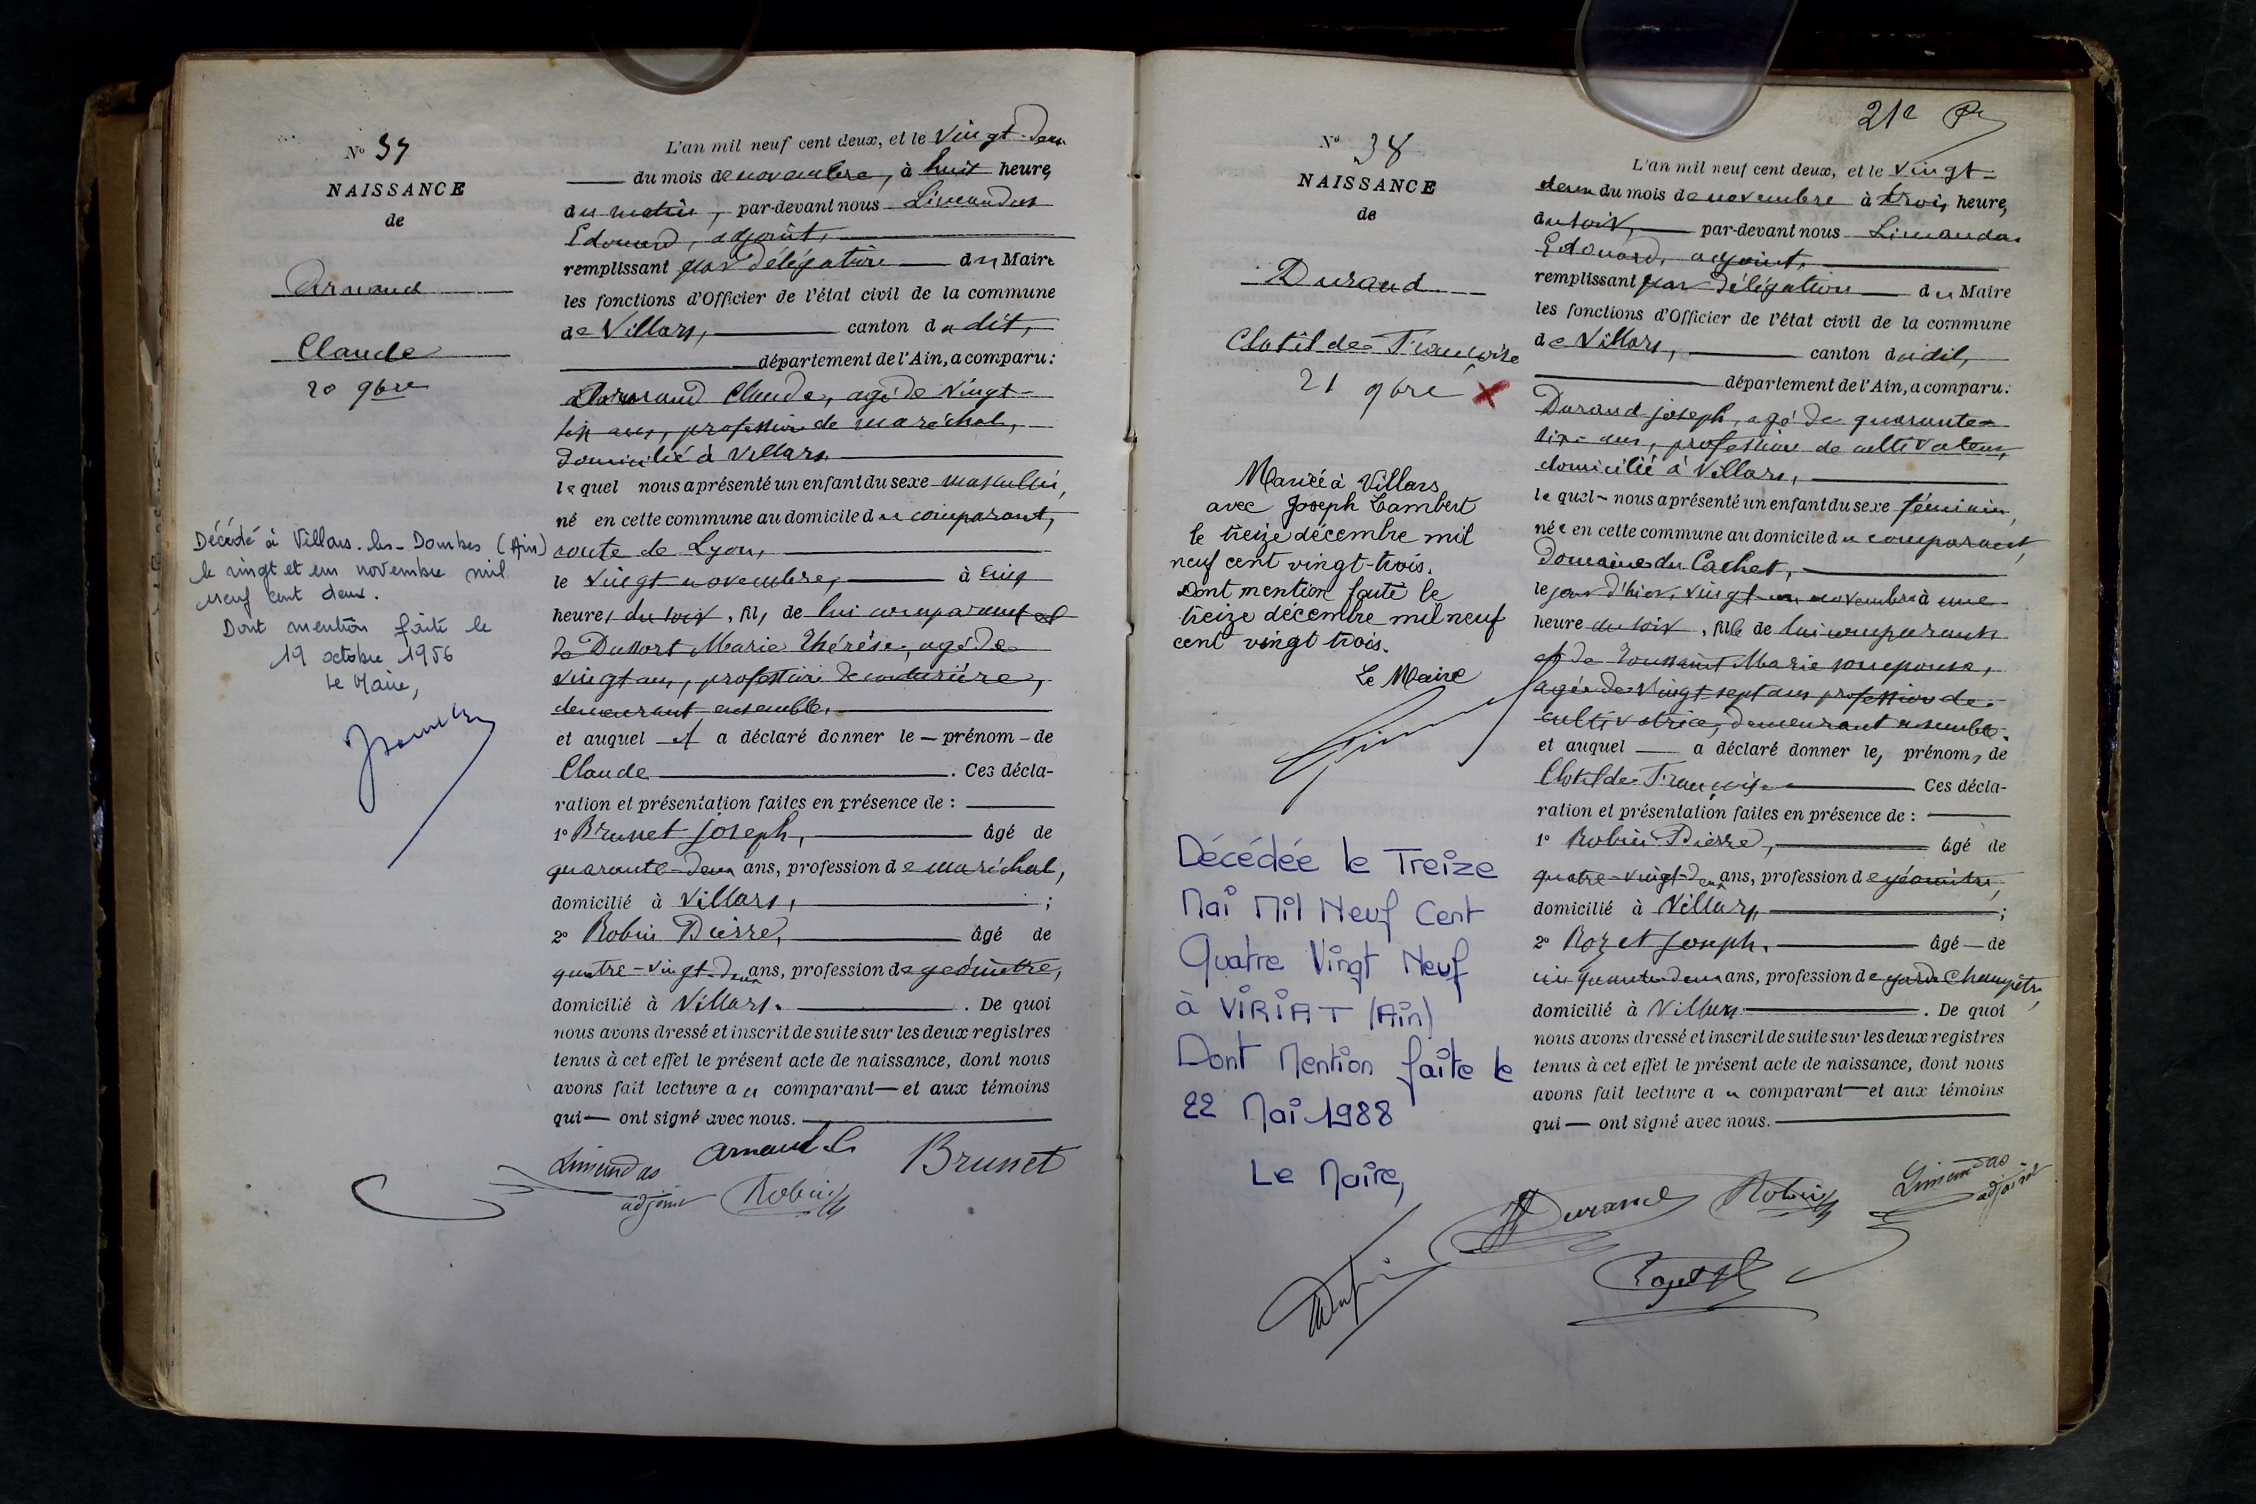 N° 37
NAISSANCE
de
Arnaud
Claude
20 9bre
Décédé à Villars-les-Dombes (Ain)
le vingt et un novembre mil
neuf cent deux.
Dont mention faite le
19 octobre 1956
Le Maire,
L'an mil neuf cent deux, et le vingt-deux
du mois de novembre, à huit heures
du matin, par-devant nous Limandas
Edouard, adjoint,
remplissant par délégation du Maire
les fonctions d'Officier de l'état civil de la commune
de Villars, canton dudit,
département de l'Ain, a comparu :
Arnaud Claude, agé de vingt-
ans, profession de maréchal,
domicilié à Villars
lequel nous a présenté un enfant du sexe masculin,
né en cette commune au domicile du comparant,
route de Lyon,
le vingt novembre, à cinq
heures du soir, fils de lui comparant et
de Marie Thérèse, agé de
vingt ans, profession de couturière,
demeurant ensemble,
et auquel il a déclaré donner le prénom de
Claude. Ces décla-
ration et présentation faites en présence de :
1° Brunet Joseph, âgé de
quarante-deux ans, profession de maréchal,
domicilié à Villars, ;
2° Robin Pierre, âgé de
quatre-vingt-deux ans, profession de géomètre,
domicilié à Villars. De quoi
nous avons dressé et inscrit de suite sur les deux registres
tenus à cet effet le présent acte de naissance, dont nous
avons fait lecture au comparant et aux témoins
qui ont signé avec nous.
Limandas
adjoint
Arnaud Cl
Robin
Brunet
21e
N° 38
NAISSANCE
de
Durand
Clotilde Françoise
21 9bre x
Mariée à Villars
avec Joseph Lambert
le treize décembre mil
neuf cent vingt-trois.
Dont mention faite le
treize décembre mil neuf
cent vingt trois.
Le Maire
Décédée le Treize
Mai Mil Neuf Cent
Quatre Vingt Neuf
à VIRIAT (Ain)
Dont Mention faite le
22 Mai 1988
Le Maire,
L'an mil neuf cent deux, et le vingt-
deux du mois de novembre à trois heures
du soir, par-devant nous Limandas
Edouard, adjoint,
remplissant par délégation du Maire
les fonctions d'Officier de l'état civil de la commune
de Villars, canton dudit,
département de l'Ain, a comparu :
Durand Joseph, agé de quarante-
six ans, profession de cultivateur,
domicilié à Villars,
lequel nous a présenté un enfant du sexe féminin,
née en cette commune au domicile du comparant,
Domaine du Cachet,
le jour d'hier, vingt un novembre à une
heure du soir, fille de lui comparant
et de Toussaint Marie son épouse,
agée de vingt sept ans profession de
cultivatrice, demeurant ensemble.
et auquel a déclaré donner les prénoms de
Clotilde Françoise Ces décla-
ration et présentation faites en présence de :
1° Robin Pierre, âgé de
quatre-vingt-deux ans, profession de géomètre,
domicilié à Villars, ;
2° Rozet Joseph, âgé de
cinquante-deux ans, profession de garde champêtre,
domicilié à Villars. De quoi
nous avons dressé et inscrit de suite sur les deux registres
tenus à cet effet le présent acte de naissance, dont nous
avons fait lecture au comparant et aux témoins
qui ont signé avec nous.
Durand
Robin
Limandas
adjoint
Rozet